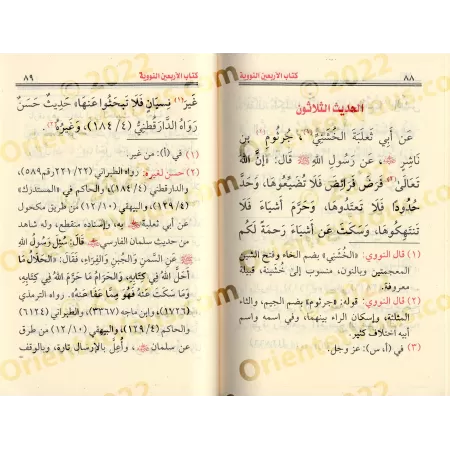 ٨٨
كتاب الأربعين النووية
الحديث الثلاثون
عَنِ أَبِي ثَعْلَبَةَ الخُشَنِيِّ(١)، جُرْثُومِ(٢) بنِ
نَاشِرٍ ﷺ، عَن رَسُولِ اللهِ ﷺ قَالَ: «إِنَّ اللهَ
تَعَالَى(٣) فَرَضَ فَرَائِضَ فَلَا تُضَيِّعُوهَا، وَحَدَّ
حُدُودًا فَلَا تَعتَدُوهَا، وَحَرَّمَ أَشْيَاءَ فَلَا
تَنتَهِكُوهَا، وَسَكَتَ عَن أَشْيَاءَ رَحمَةً لَكُم
(١) قال النووي: «الخُشَني» بضم الخاء وفتح الشين
المعجمتين وبالنون، منسوب إلى خُشَينة، قبيلة
معروفة.
(٢) قال النووي: قوله: «جرثوم» بضم الجيم، والثاء
المثلثة، وإسكان الراء بينهما، وفي اسمه واسم
أبيه اختلاف كثير.
(٣) في (أ، س): عز وجل.
كتاب الأربعين النووية
٨٩
غَيرَ(١) نِسيَانٍ فَلَا تَبحَثُوا عَنهَا» حَدِيثٌ حَسَنٌ
رَوَاهُ الدَّارَقُطنِيُّ (١٨٤/٤)، وَغَيرُهُ(٢).
(١) في (أ): من غير.
(٢) حسن لغيره: رواه الطبراني (٢٢١/٢٢ رقم ٥٨٩)،
والدارقطني (١٨٤/٤)، والحاكم في «المستدرك»
(١٢٩/٤)، والبيهقي (١٢/١٠) من طريق مكحول
عن أبي ثعلبة ﷺ به، وإسناده منقطع، وله شاهد
من حديث سلمان الفارسي ﷺ قال: سُئِلَ رَسُولُ اللهِ
ﷺ عَنِ السَّمنِ وَالجُبنِ وَالفِرَاءِ، فَقَالَ: «الحَلَالُ مَا
أَحَلَّ اللهُ فِي كِتَابِهِ، وَالحَرَامُ مَا حَرَّمَ اللهُ فِي كِتَابِهِ،
وَمَا سَكَتَ عَنْهُ فَهُوَ مِمَّا عَفَا عَنهُ». رواه الترمذي
(١٧٢٦)، وابن ماجه (٣٣٦٧)، والطبراني (٦١٢٤)
والحاكم (١٢٩/٤)، والبيهقي (١٢/١٠) من طرق
عن سلمان ﷺ، وأُعِلَّ بالإرسال تارة، وبالوقف